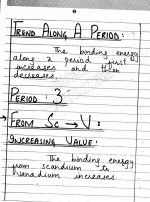 TREND ALONG A PERIOD:
The bonding energy
along a period first
increases and then
decreases.
PERIOD 3
FROM Sc → V:
INCREASING VALUE:
The bonding energy
from scandium to
Vanadium increases.